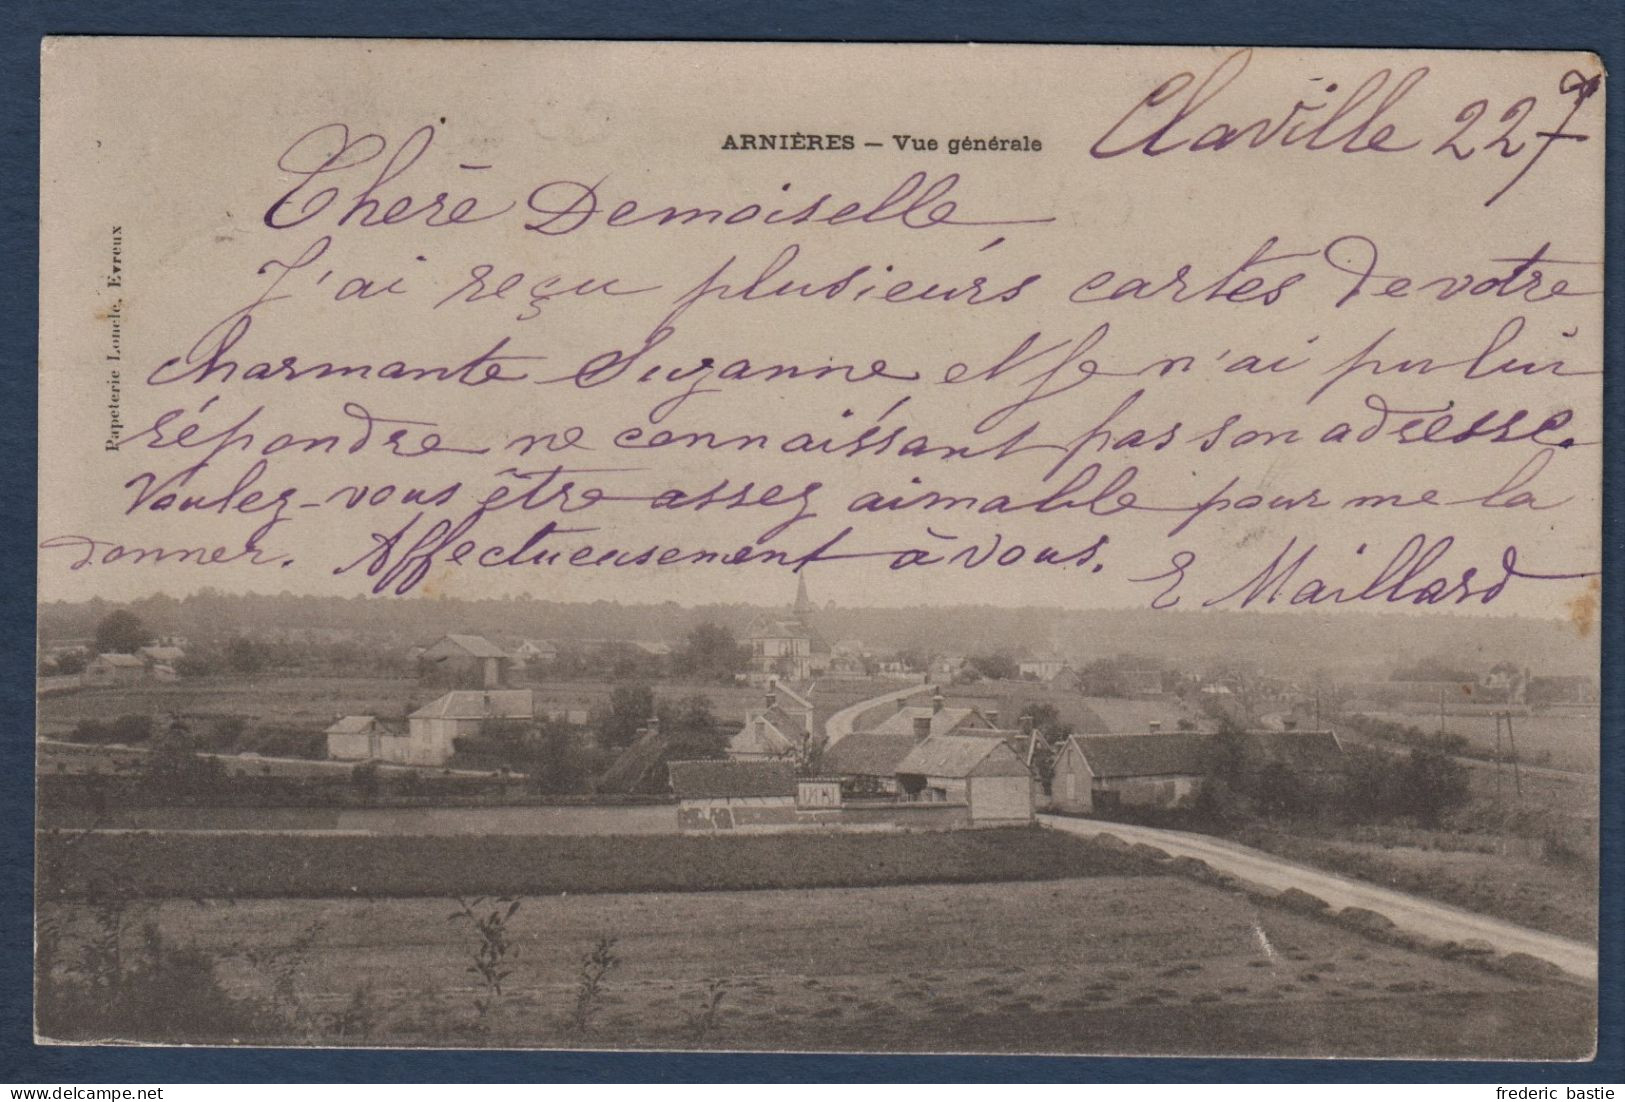 ARNIÈRES — Vue générale
Claville 22 7
Chère Demoiselle
J'ai reçu plusieurs cartes de votre
charmante Suzanne et je n'ai pu lui
répondre ne connaissant pas son adresse.
Voulez-vous être assez aimable pour me la
donner. Affectueusement à vous.
E Maillard
Papeterie Loncle, Evreux
frederic bastie